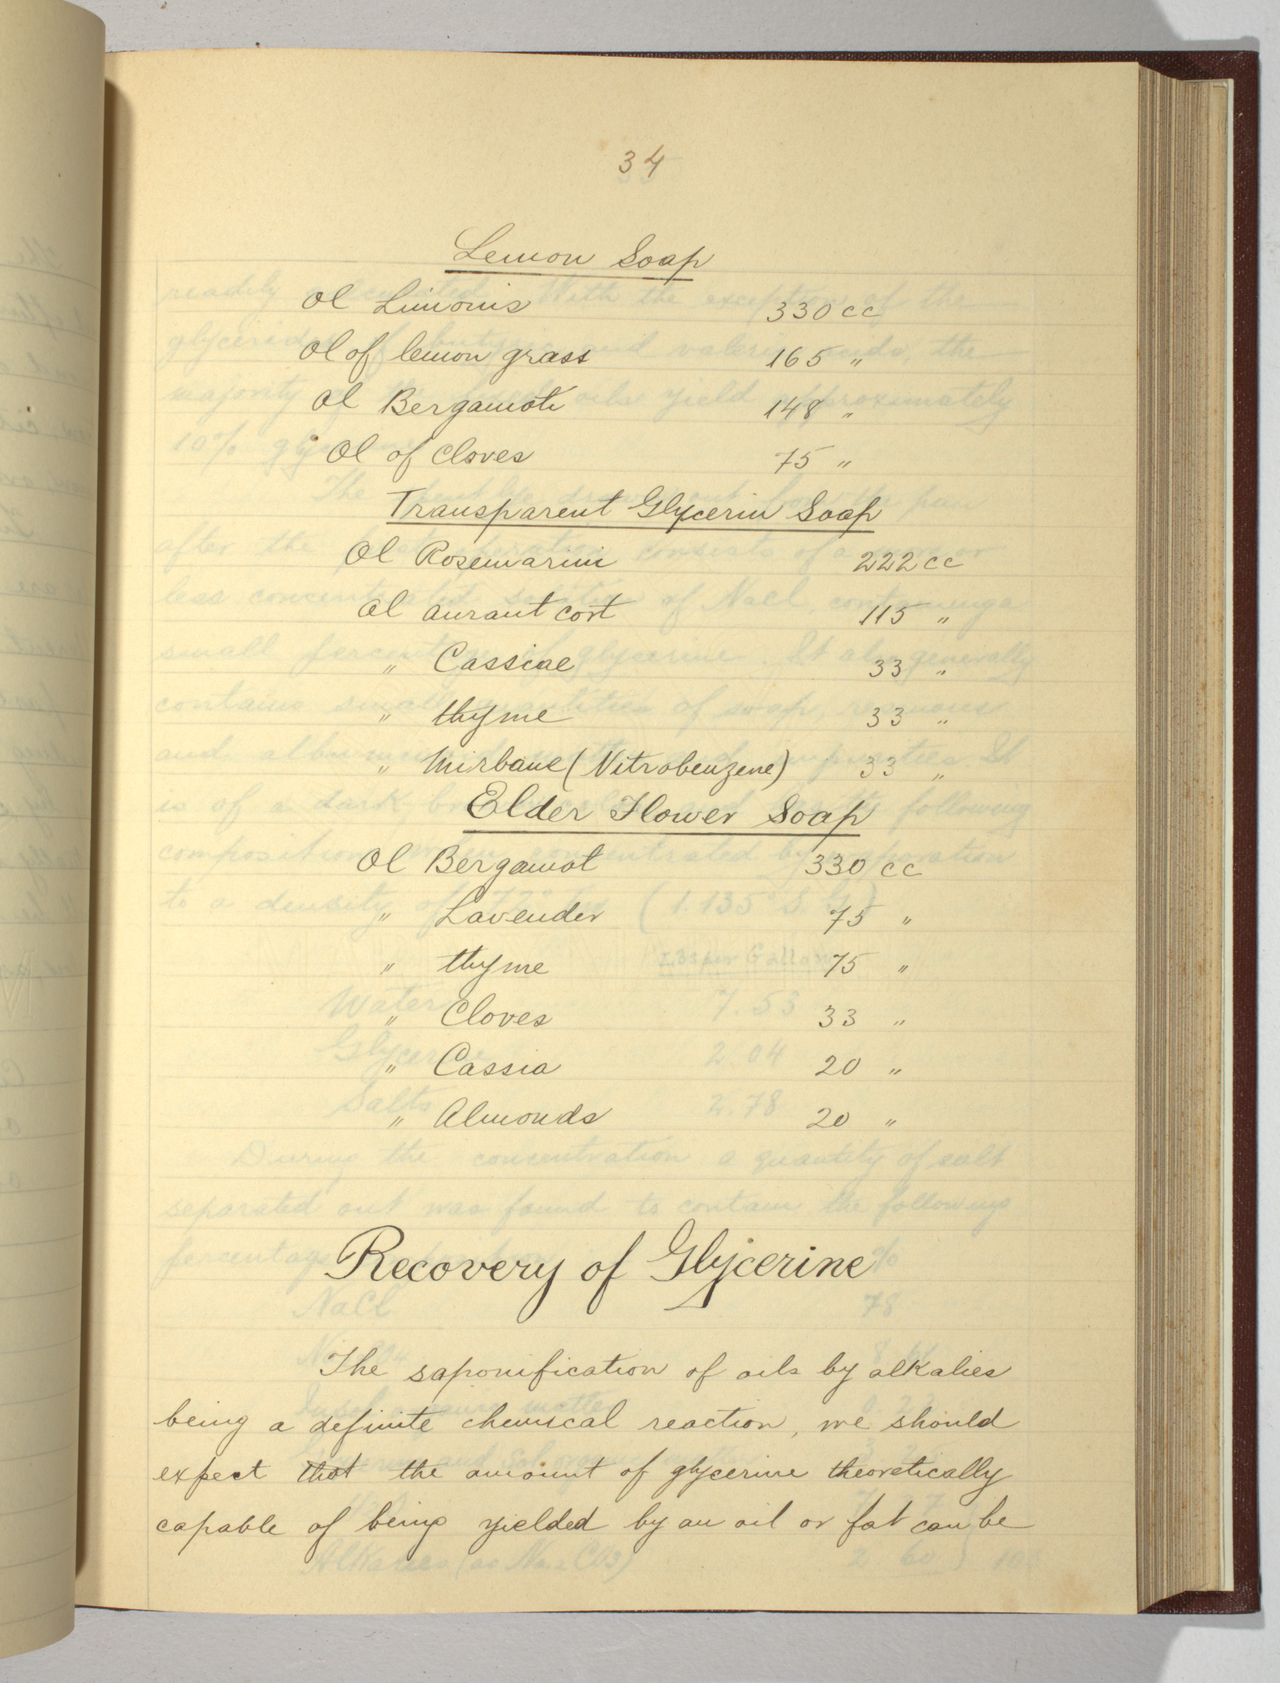 34
Lemon Soap
Ol Limonis 330 cc
Ol of lemon grass 165 "
Ol Bergamoti 148 "
Ol of Cloves 75 "
Transparent Glycerin Soap
Ol Rosemarini 222 cc
Ol aurant cort 115 "
" Cassiae 33 "
" thyme 33 "
" Mirbane (Nitrobenzene) 33 "
Elder Flower Soap
Ol Bergamot 330 cc
" Lavender 75 "
" thyme 75 "
" Cloves 33 "
" Cassia 20 "
" Almonds 20 "
Recovery of Glycerine
The saponification of oils by alkalies
being a definite chemical reaction, we should
expect that the amount of glycerine theoretically
capable of being yielded by an oil or fat can be